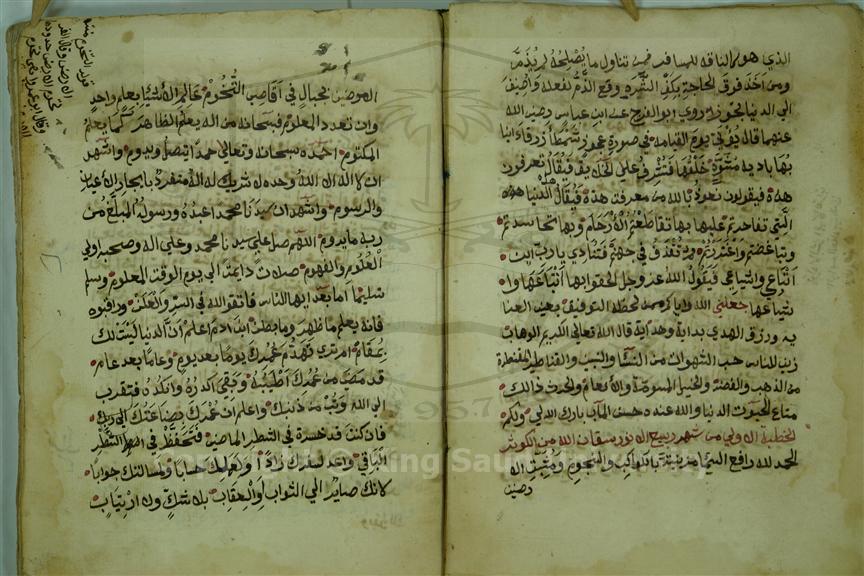 الذي هو للناقه للمسافر فمن تناول ما يصلحه لم يذم
ومن اخذ فوق الحاجة بكف الشره وقع الذم لفعله واضيف
الي الدنيا تجوزا روي ابو الفرج عن ابن عباس رضي الله
عنهما قال يؤتي يوم القيامه في صورة عجوز شمطا زرقاء انيا
بها باديه مشوة خلقها فتشرف علي الخلايق فيقال تعرفون
هذه فيقولون نعوذ بالله من معرفت هذة فيقال هذه الدنيا
التي تفاخرتم عليها بها تقاطعتم الارحام وبها تحاسدتم
وتباغضتم واغتررتم ثم تقذف في جهنم فتنادي يا رب اين
اتباعي واشياعي فيقول الله عز وجل الحقوا بها اتباعها وا
شياعها جعلني الله واياكم ممن لحظه التوفيق بعين العنا
يه ورزق الهدي بداية وهداية قال الله تعالي الكريم الوهاب
زين للناس حب الشهوات من النسا والبنين والقناطير المقنطرة
من الذهب والفضة والخيل المسومة والانعام والحرث ذالك
متاع الحيوت الدنيا والله عنده حسن المآب بارك الله لي ولكم
الخطبة الاولي من شهر ربيع الا سقانا الله من الكوثر
الحمد لله رافع السما مزينة بالكواكب والنجوم ومثبت الا
رضين
الارضين بالجبال في اقاصي التخوم عالم الاشيا بعلم واحد
وان تعدد المعلوم فسبحانه من اله يعلم الظاهر كما يعلم
المكتوم احمده سبحانه وتعالى حمدا يتصل ويدوم واشهد
ان لا اله الا الله وحده لا شريك له اله منفرد بايجاد الاعيان
والرسوم واشهد ان سيدنا محمدا عبده ورسوله المبلغ من
ربه ما يدوم اللهم صل علي سيدنا محمد وعلي اله وصحبه اولي
العلوم والفهوم صلات دايمة الي يوم الوقت المعلوم وسلم
تسليما اما بعد ايها الناس فاتقوا الله في السر والعلن وراقبوه
فانه يعلم ما ظهر وما بطن ابن ادم اعلم ان الدنيا ليست لك
بمقام امر تري تهدم عمرك يوما بعد يوم وعاما بعد عام
قد مضى من عمرك اطيبه وبقي اكدره وانكده فتقرب
الي الله وتب من ذنبك واعلم ان عمرك بضاعتك الي ربك
فان كنت قد خسرة في الشطر الماضي فتحفظ في الشطر
الباقي واعد لسفرك زادا ولعملك حسابا ولمسالتك جوابا
كانك صاير الي الثواب او العقاب بلا شك ولا ارتياب